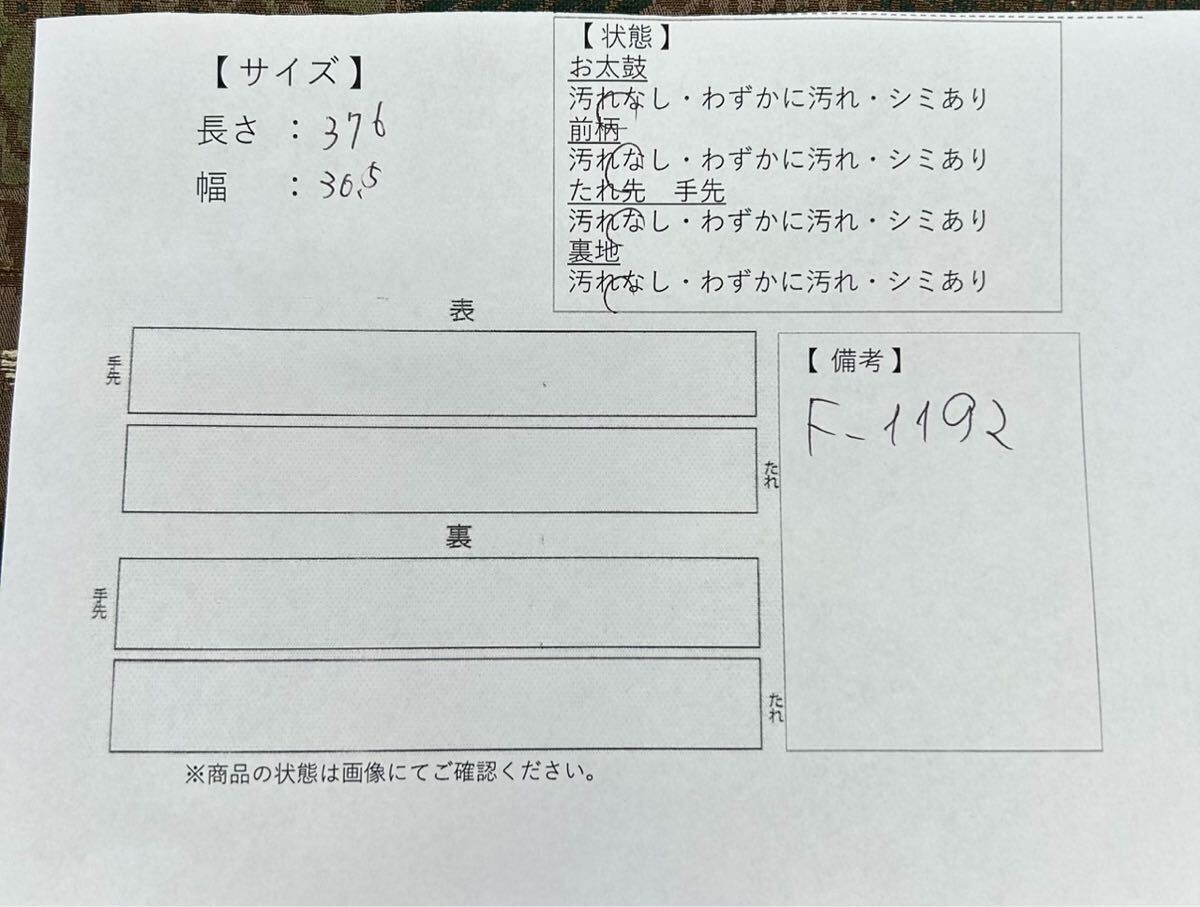 【 サイズ 】
長さ ： 376
幅 ： 30.5
【 状態 】
お太鼓
汚れなし・わずかに汚れ・シミあり
前柄
汚れなし・わずかに汚れ・シミあり
たれ先 手先
汚れなし・わずかに汚れ・シミあり
裏地
汚れなし・わずかに汚れ・シミあり
表
手先
たれ
裏
手先
たれ
【 備考 】
F-1192
※商品の状態は画像にてご確認ください。